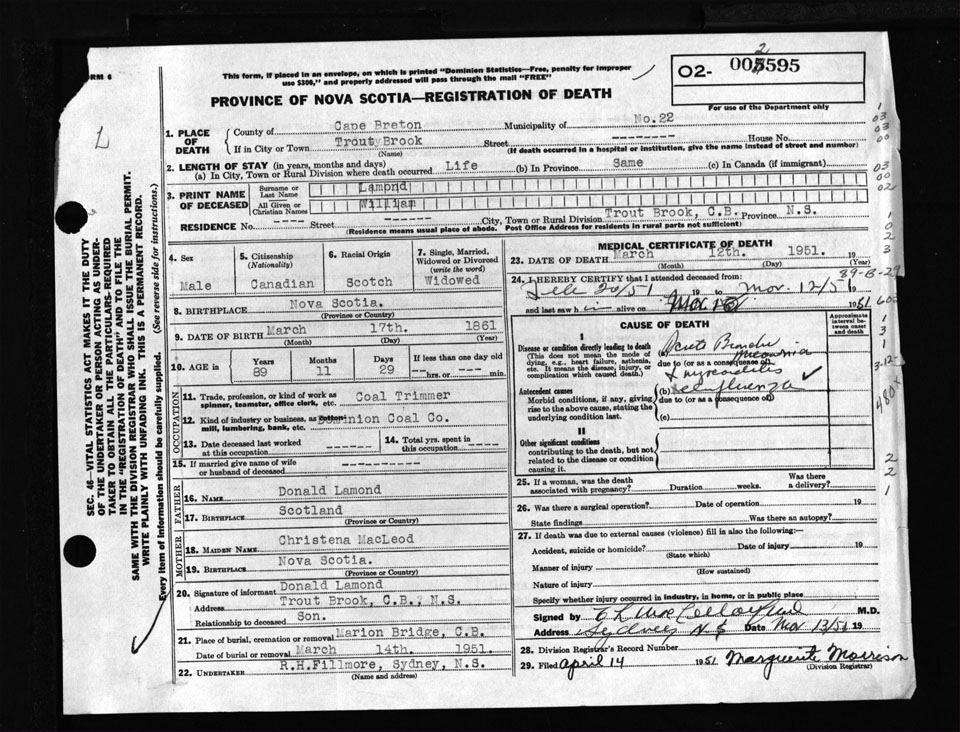 ORM 6
This form, if placed in an envelope, on which is printed "Dominion Statistics—Free, penalty for improper
use $300," and properly addressed will pass through the mail "FREE"
O2- 005595
2
For use of the Department only
PROVINCE OF NOVA SCOTIA—REGISTRATION OF DEATH
L
1. PLACE OF DEATH
County of Cape Breton Municipality of No.22
If in City or Town Trout Brook Street -------- House No.
(Name) (If death occurred in a hospital or institution, give the name instead of street and number)
2. LENGTH OF STAY (in years, months and days)
(a) In City, Town or Rural Division where death occurred Life (b) In Province Same (c) In Canada (if immigrant)
3. PRINT NAME OF DECEASED
Surname or Last Name Lamond
All Given or Christian Names William
RESIDENCE No. ---- Street ------ City, Town or Rural Division Trout Brook, C.B. Province N.S.
(Residence means usual place of abode. Post Office Address for residents in rural parts not sufficient)
4. Sex
Male
5. Citizenship
(Nationality)
Canadian
6. Racial Origin
Scotch
7. Single, Married, Widowed or Divorced
(write the word)
Widowed
8. BIRTHPLACE Nova Scotia.
(Province or Country)
9. DATE OF BIRTH March 17th. 1861
(Month) (Day) (Year)
10. AGE in
Years 89
Months 11
Days 29
If less than one day old
hrs. or min.
OCCUPATION
11. Trade, profession, or kind of work as
spinner, teamster, office clerk, etc. Coal Trimmer
12. Kind of industry or business, as cotton
mill, lumbering, bank, etc. Dominion Coal Co.
13. Date deceased last worked
at this occupation ----
14. Total yrs. spent in
this occupation ----
15. If married give name of wife
or husband of deceased ----------
FATHER
16. NAME Donald Lamond
17. BIRTHPLACE Scotland
(Province or Country)
MOTHER
18. MAIDEN NAME Christena MacLeod
19. BIRTHPLACE Nova Scotia.
(Province or Country)
20. Signature of informant Donald Lamond
Address Trout Brook, C.B., N.S.
Relationship to deceased Son.
21. Place of burial, cremation or removal Marion Bridge, C.B.
Date of burial or removal March 14th. 1951.
22. UNDERTAKER R.H.Fillmore, Sydney, N.S.
(Name and address)
MEDICAL CERTIFICATE OF DEATH
23. DATE OF DEATH March 12th. 1951. 19
(Month) (Day) (Year)
24. I HEREBY CERTIFY that I attended deceased from:
20/51 19 to Mar. 12/51
and last saw h im alive on Mar 1951
CAUSE OF DEATH
Approximate interval between onset and death
I
Disease or condition directly leading to death
(This does not mean the mode of dying, e.g., heart failure, asthenia, etc. It means the disease, injury, or complication which caused death.)
(a) Acute
due to (or as a consequence of)
Antecedent causes
Morbid conditions, if any, giving rise to the above cause, stating the underlying condition last.
(b) Influenza
due to (or as a consequence of)
(c)
II
Other significant conditions
contributing to the death, but not related to the disease or condition causing it.
25. If a woman, was the death
associated with pregnancy? Duration weeks. Was there a delivery?
26. Was there a surgical operation? Date of operation 19
State findings Was there an autopsy?
27. If death was due to external causes (violence) fill in also the following:—
Accident, suicide or homicide? Date of injury 19
(State which)
Manner of injury
(How sustained)
Nature of injury
Specify whether injury occurred in industry, in home, or in public place
Signed by M.D.
Address Sydney N.S Date Mar 13/51 19
28. Division Registrar's Record Number
29. Filed April 14 1951 Marguerite Morrison
(Division Registrar)
SEC. 46—VITAL STATISTICS ACT MAKES IT THE DUTY
OF THE UNDERTAKER OR PERSON ACTING AS UNDER-
TAKER TO OBTAIN ALL THE PARTICULARS REQUIRED
IN THE "REGISTRATION OF DEATH" AND TO FILE THE
SAME WITH THE DIVISION REGISTRAR WHO SHALL ISSUE THE BURIAL PERMIT.
WRITE PLAINLY WITH UNFADING INK. THIS IS A PERMANENT RECORD.
Every item of information should be carefully supplied. (See reverse side for instructions.)
1
03
03
00
03
00
02
1
0
2
3
89-B-29
602
1
3
1
3-12
480x
2
2
1